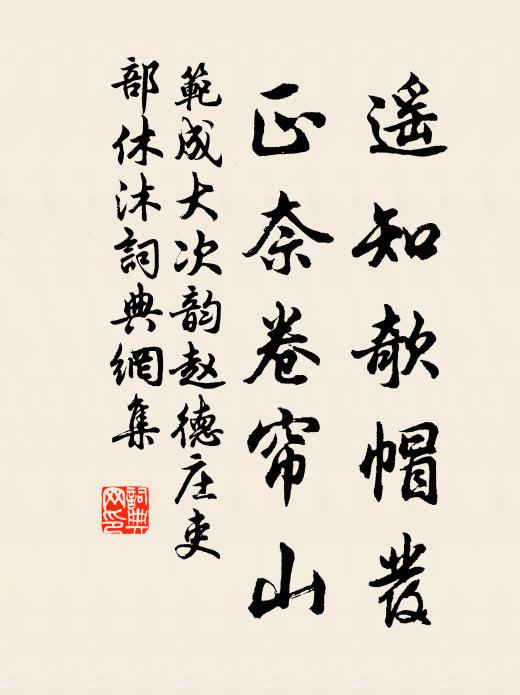 遥知欹帽发
正奈卷帘山
範成大次韵赵德庄吏
部休沐詞典網集
詞典网印